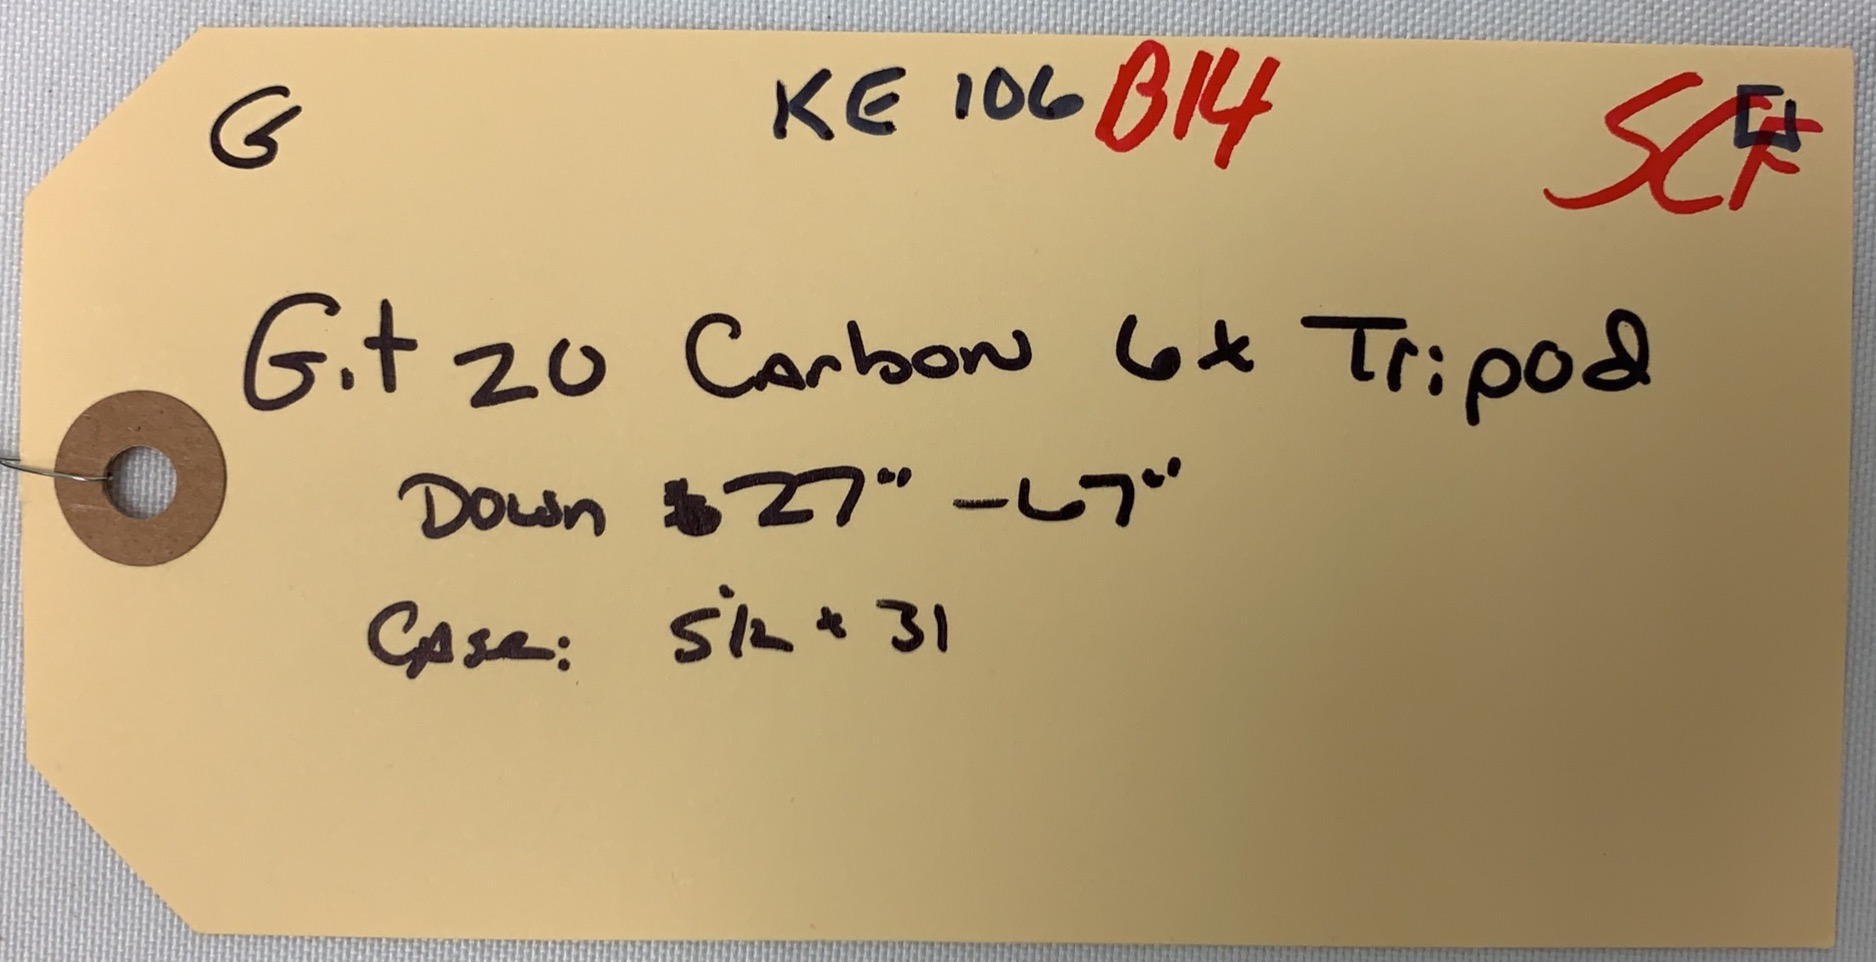 G KE 106 B14 SCF
Gitzo Carbon 6x Tripod
Down 27" - 67"
Case: 5 1/2 x 31